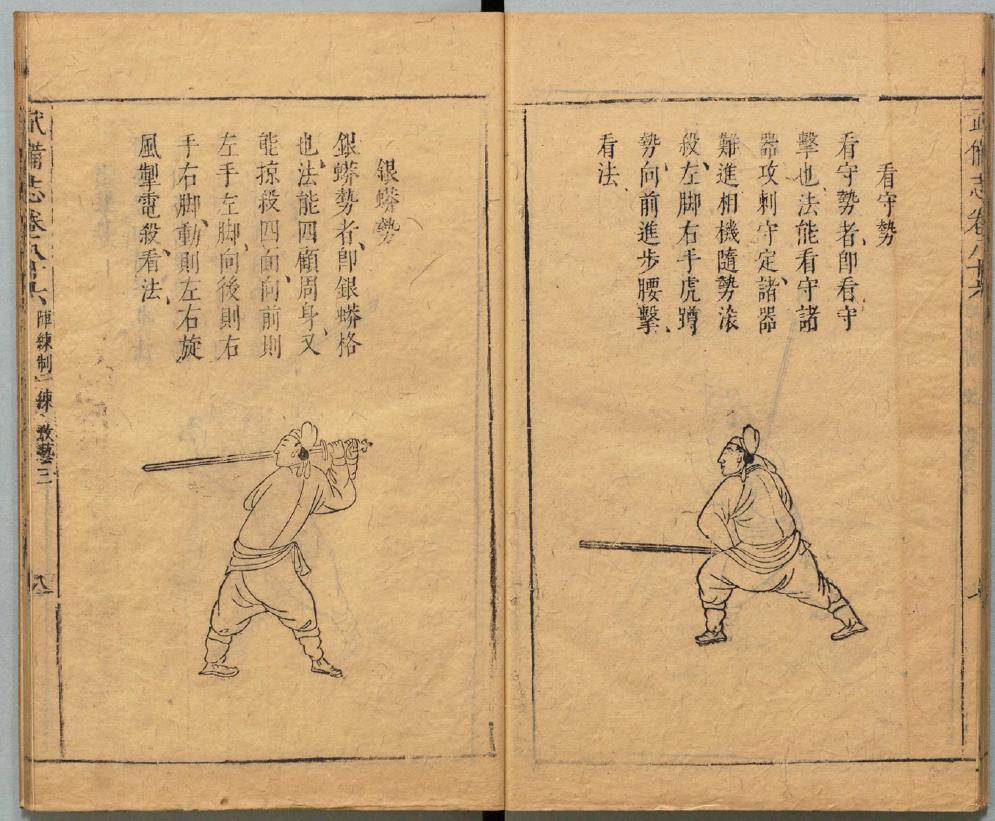 看守勢
看守勢者、卽看守
擊也、法能看守諸
器攻刺守定、諸器
難進相機隨勢滚
殺、左脚右手虎蹲
勢、向前進步腰擊、
看法、
銀蟒勢
銀蟒勢者、卽銀蟒格
也、法能四顧周身、又
能掠殺四面、向前則
左手左脚、向後則右
手右脚、動則左右旋
風掣電殺、看法、
武備志卷八十六 陣練制 練 教藝三
八